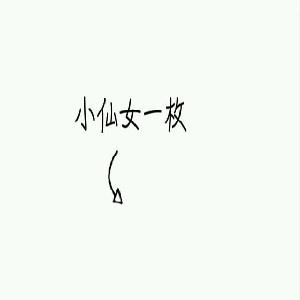 小仙女一枚